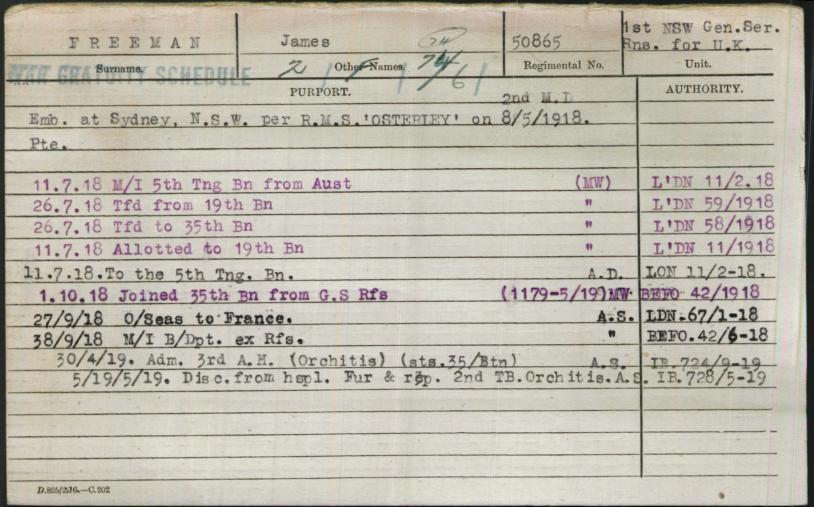 FREEMAN James 50865 1st NSW Gen.Ser.
Rns. for U.K.
Surname. Other Names Regimental No. Unit.
WAR GRATUITY SCHEDULE
PURPORT. AUTHORITY.
2nd M.D
Emb. at Sydney, N.S.W. per R.M.S.'OSTERLEY' on 8/5/1918.
Pte.
11.7.18 M/I 5th Tng Bn from Aust (MW) L'DN 11/2.18
26.7.18 Tfd from 19th Bn " L'DN 59/1918
26.7.18 Tfd to 35th Bn " L'DN 58/1918
11.7.18 Allotted to 19th Bn " L'DN 11/1918
11.7.18.To the 5th Tng. Bn. A.D. LON 11/2-18.
1.10.18 Joined 35th Bn from G.S Rfs (1179-5/19)MW BEFO 42/1918
27/9/18 O/Seas to France. A.S. LDN.67/1-18
38/9/18 M/I B/Dpt. ex Rfs. " BEFO.42/6-18
30/4/19. Adm. 3rd A.H. (Orchitis) (sts.35/Btn) A.S. IB.724/9-19
5/19/5/19. Disc.from hspl. Fur & rep. 2nd TB.Orchitis.A.S. IB.728/5-19
D.825/2.16.—C.202